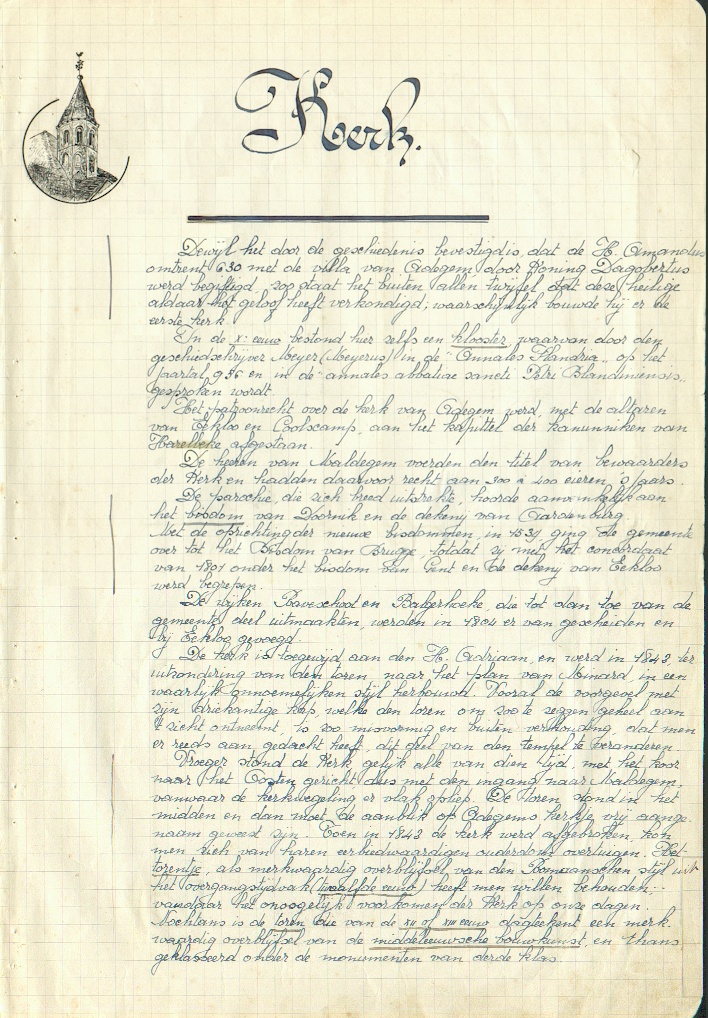 Kerk.
Dewijl het door de geschiedenis bevestigd is, dat de H. Amandus
omtrent 630 met de villa van Adegem door Koning Dagobertus
werd begiftigd, zoo staat het buiten allen twijfel dat deze heilige
aldaar het geloof heeft verkondigd; waarschijnlijk bouwde hij er de
eerste kerk
In de X: eeuw bestond hier zelfs een klooster, waarvan door den
geschiedschrijver Meyer (Meyerus) in de "Annales Flandria" op het
jaartal 956 en in de "annales abbatiae sancti Petri Blandiniensis"
gesproken wordt.
Het patroonrecht over de kerk van Adegem werd, met de altaren
van Eekloo en Coolscamp, aan het kapittel der kanunniken van
Harelbeke afgestaan.
De heeren van Maldegem voerden den titel van bewaarders
der Kerk en hadden daarvoor recht aan 300 à 400 eieren 's jaars.
De parochie, die zich breed uitstrekte, hoorde aanvankelijk aan
het bisdom van Doornik en de dekenij van Aardenburg
Met de oprichting der nieuwe bisdommen, in 1559 ging de gemeente
over tot het Bisdom van Brugge, totdat zij met het concordaat
van 1801 onder het bisdom van Gent en de dekenij van Eekloo
werd begrepen.
De wijken Raveschoot en Balgerhoeke, die tot dan toe van de
gemeente deel uitmaakten, werden in 1804 er van gescheiden en
bij Eekloo gevoegd.
De kerk is toegewijd aan den H. Adrijaan, en werd in 1843, ter
uitzondering van den toren, naar het plan van Minard, in een
waarlijk onnoemelijken stijl herbouwd. Vooral de voorgevel met
zijn driekantige kap, welke den toren om zoo te zeggen geheel aan
't zicht ontneemt, is zoo misvormig en buiten verhouding, dat men
er reeds aan gedacht heeft, dit deel van den tempel te veranderen.
Vroeger stond de Kerk gelijk alle van dien tijd, met het koor
naar het Oosten gericht, dus met den ingang naar Maldegem,
vanwaar de kerkwegeling er vlak opliep. De toren stond in het
midden en dan moet de aanblik op Adegems kerkje vrij aange-
naam geweest zijn. Toen in 1843 de kerk werd afgebroken, kon
men zich van haren eerbiedwaardigen ouderdom overtuigen. Het
torentje, als merkwaardig overblijfsel van den Romaanschen stijl uit
het overgangstijdvak (twaalfde eeuw) heeft men willen behouden:
vandaar het onoogelijk voorkomen der Kerk op onze dagen.
Nochtans is de toren die van de XII of XIII eeuw dagteekent een merk-
waardig overblijfsel van de middeleeuwsche bouwkunst, en thans
geklasseerd onder de monumenten van derde klas.